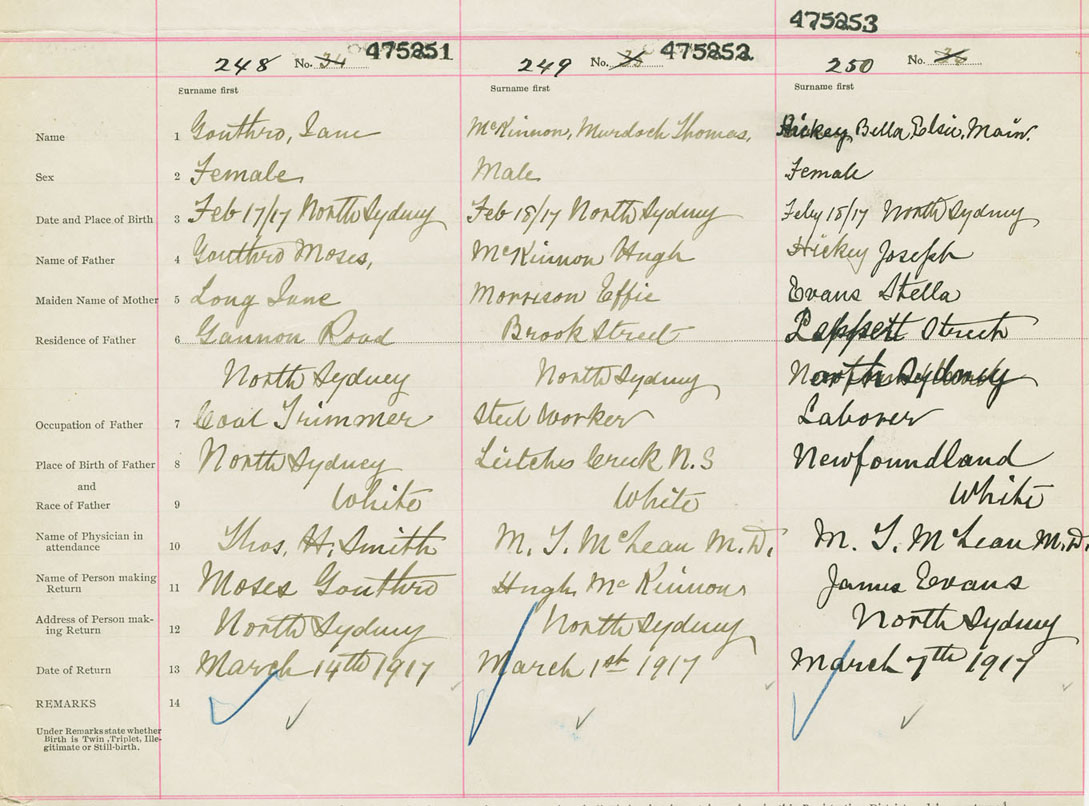 475253
475251
475252
248 No. 34
249 No. 35
250 No. 36
Surname first
Surname first
Surname first
Name 1 Gouthro, Jane
McKinnon, Murdoch Thomas,
Hickey, Bella, Elsie, Main.
Sex 2 Female
Male
Female
Date and Place of Birth 3 Feb 17/17 North Sydney
Feb 18/17 North Sydney
Feby 18/17 North Sydney
Name of Father 4 Gouthro Moses,
McKinnon Hugh
Hickey Joseph
Maiden Name of Mother 5 Long Jane
Morrison Effie
Evans Stella
Residence of Father 6 Gannon Road
Brook Street
Street
North Sydney
North Sydney
Occupation of Father 7 Coal Trimmer
Steel Worker
Laborer
Place of Birth of Father 8 North Sydney
Leitches Creek N.S
Newfoundland
and
Race of Father 9 White
White
White
Name of Physician in
attendance 10 Thos. H. Smith
M. T. McLean M.D.
M. T. McLean M.D.
Name of Person making
Return 11 Moses Gouthro
Hugh McKinnon
James Evans
Address of Person mak-
ing Return 12 North Sydney
North Sydney
North Sydney
Date of Return 13 March 14th 1917
March 1st 1917
March 7th 1917
REMARKS 14
Under Remarks state whether
Birth is Twin, Triplet, Ille-
gitimate or Still-birth.